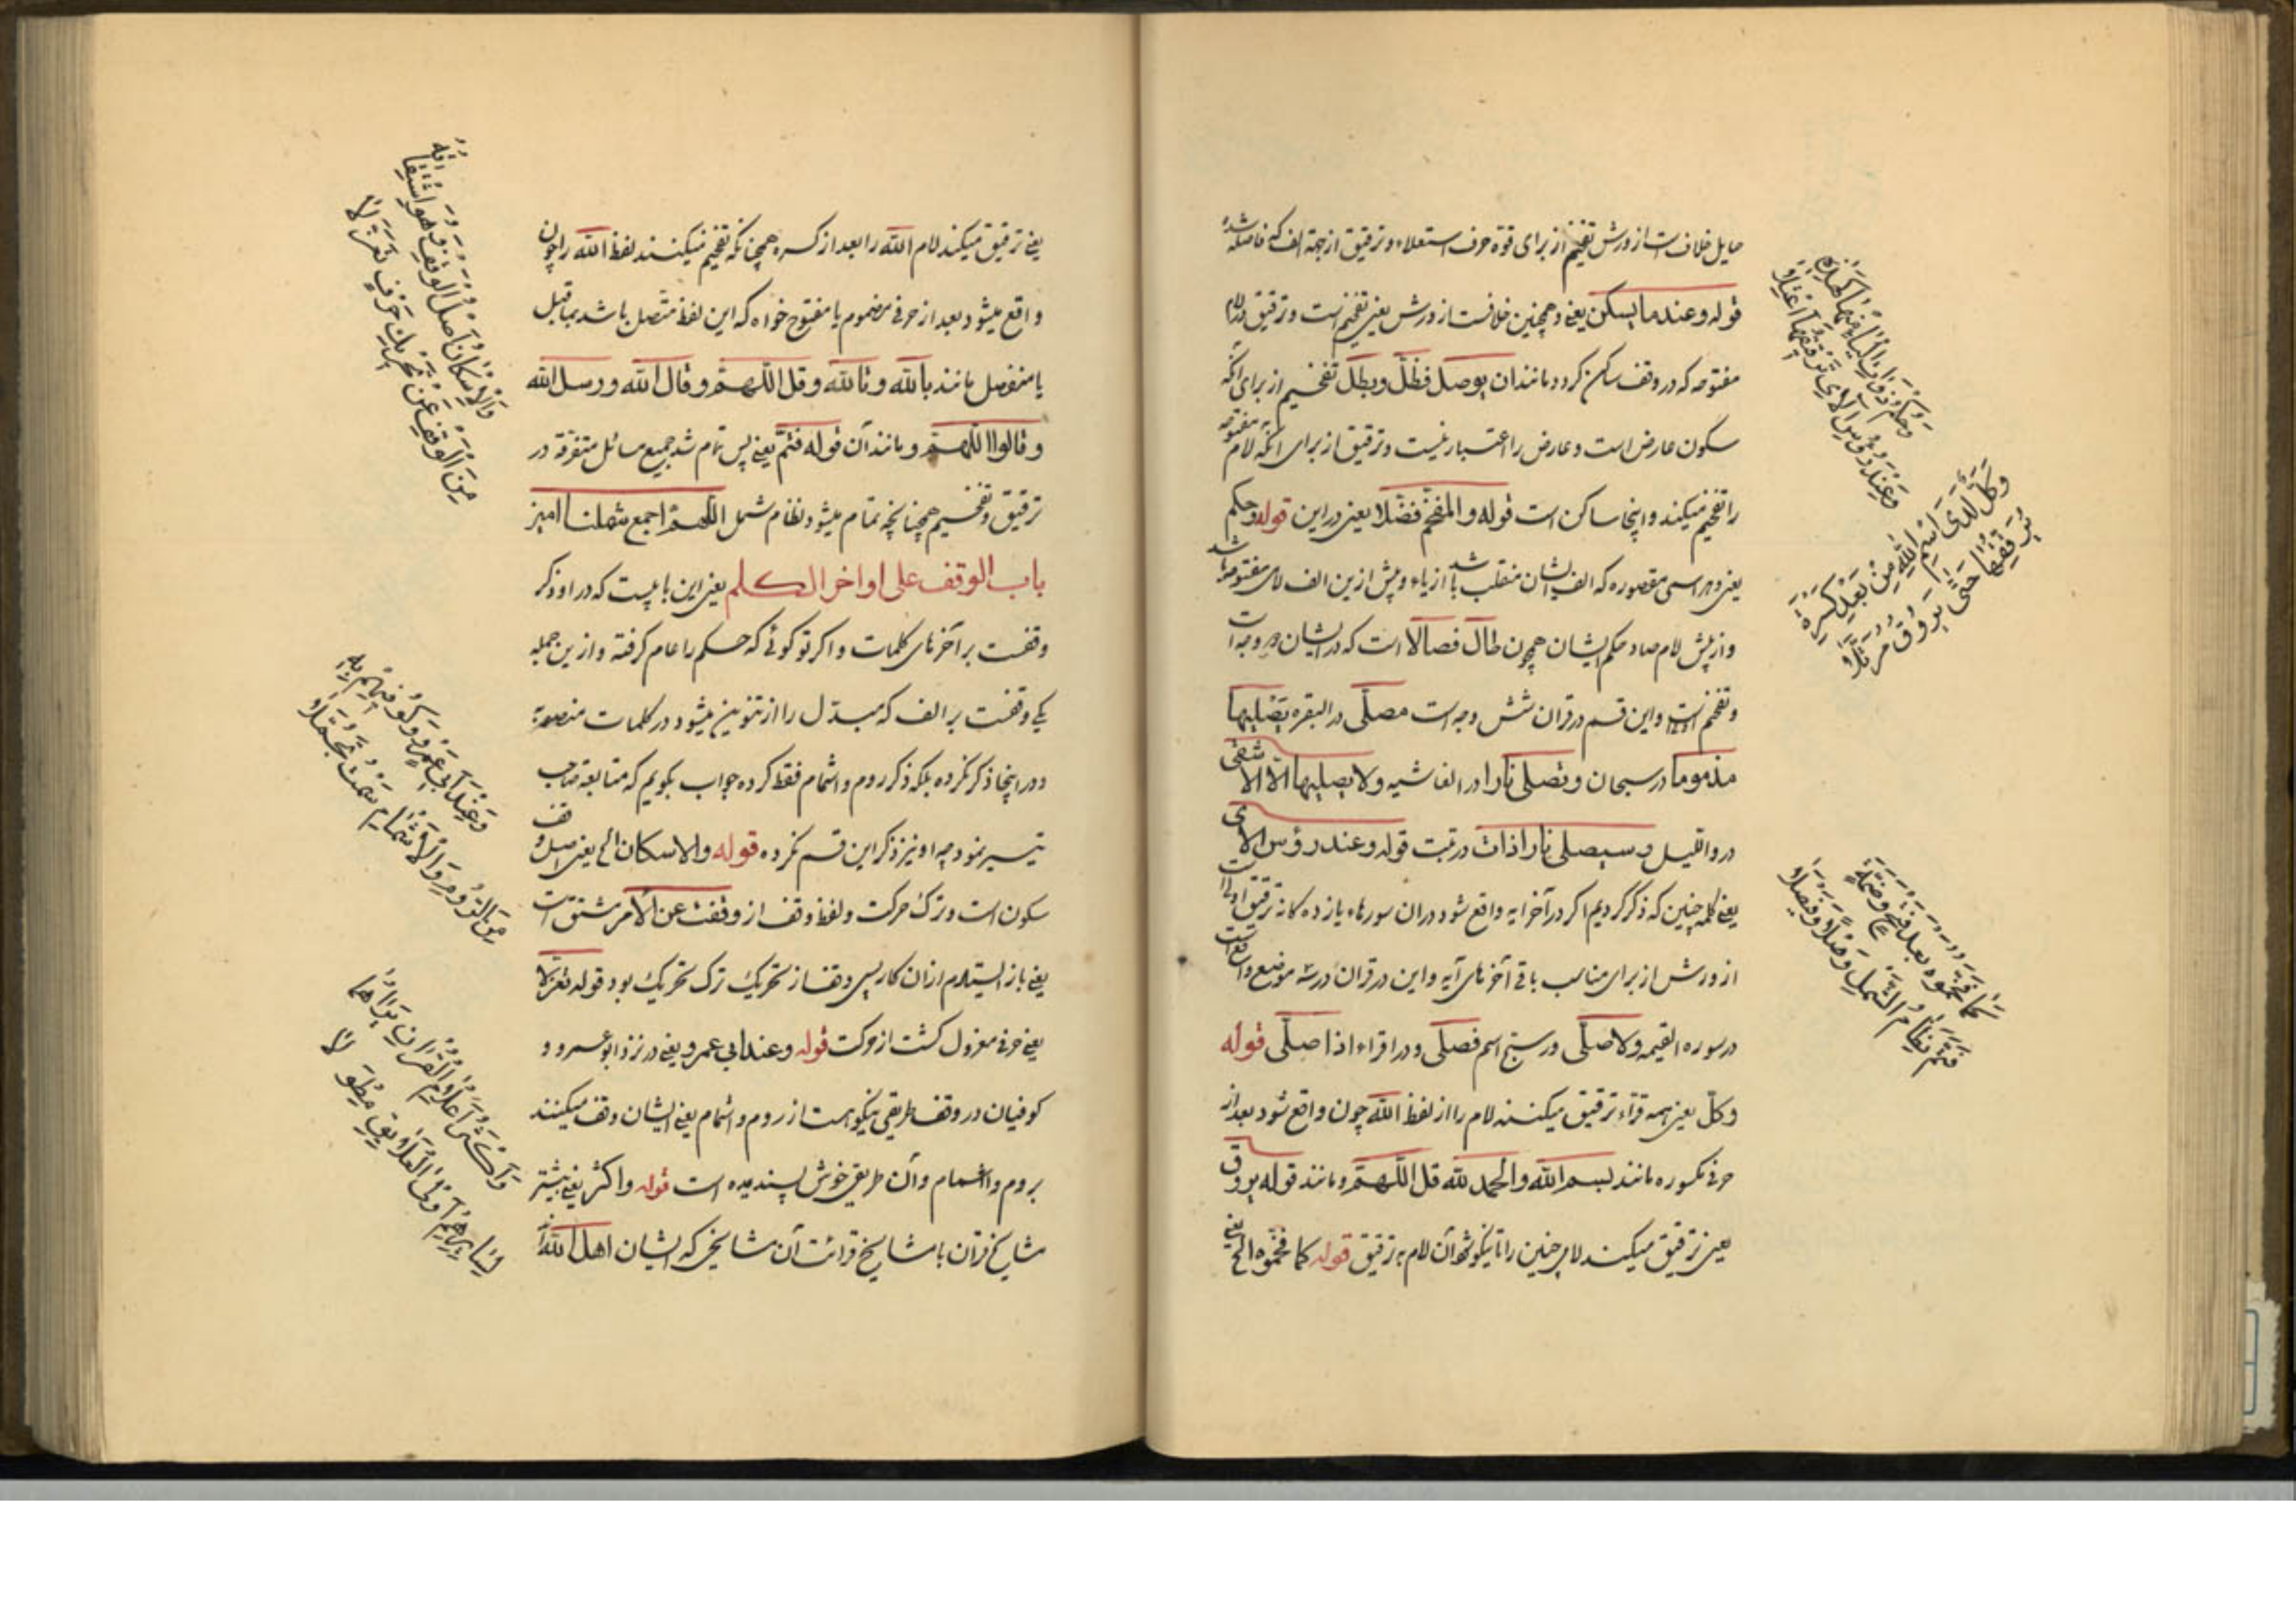 حایل خلاف است از ورش تفخیم از برای قوة حرف استعلاء و ترقیق از جهة الف که فاصله شده
قوله وعند ما یسکن یعنی و همچنین خلافست از ورش یعنی تفخیم است و ترقیق در لام
مفتوحه که در وقف ساکن کردد مانند ان یوصل فظلّ وبطل تفخیم از برای آنکه
سکون عارض است و عارض را اعتبار نیست و ترقیق از برای آنکه لام مفتوحه
را تفخیم میکنند و اینجا ساکن است قوله والمفخم فضّلا یعنی در این قوله وحکم
یعنی و هر اسمی مقصوره که الف ایشان منقلب باشد از یاء و پیش ازین الف لامی مفتوحه باشد
و از پیش لام صاد حکم ایشان همچون طال فصالا است که در ایشان هر دو وجه است
و تفخیم اولی است و این قسم در قران شش وجه است مصلّی در البقره یصلیها
مذموما در سبحان وتصلی نارا در الغاشیه ولا یصلیها الّا الاشقی
در واللیل و سیصلی نارا ذات در تبت قوله وعند رؤس الای
یعنی کلمه چنین که ذکر کردیم اکر در آخر ایه واقع شود در ان سورهاء یازده کانه ترقیق اولی است
از ورش از برای مناسب باقی آخرهای آیه و این در قران در سه موضع واقع است
در سوره القیمه ولا صلّی در سبح اسم فصلّی و در اقراء اذا صلّی قوله
وکلّ یعنی همه قرّاء ترقیق میکنند لام را از لفظ الله چون واقع شود بعد از
حرفی مکسوره مانند بسم الله والحمد لله قل اللّهمّ و مانند قوله یروق
یعنی ترقیق میکنند لامی چنین را تا نیکو شود آن لام به ترقیق قوله کما فخّموه الخ یعنی
وحکم ذوات الیاء منها کهذه
وعند رؤس الآی ترقیقها اعتلا
وکلّ لدی اسم الله من بعد کسرة
یرققها حتّی یروق مرتّلا
کما فخّموه بعد فتح وضمّة
فتمّ نظام الشّمل وصلا وفیصلا
یعنی ترقیق میکنند لام الله را بعد از کسره همچنانکه تفخیم میکنند لفظ الله را چون
واقع میشود بعد از حرفی مضموم یا مفتوح خواه که این لفظ متّصل باشد بماقبل
یا منفصل مانند بالله و تالله و قل اللّهمّ و قال الله و رسل الله
و قالوا اللّهمّ و مانند آن قوله فتمّ یعنی پس تمام شد جمیع مسائل متفرّقه در
ترقیق و تفخیم همچنانچه تمام میشود نظام شمل اللّهمّ اجمع شملنا امین
باب الوقف علی اواخر الکلم یعنی این بابیست که در او ذکر
وقفست بر آخرهای کلمات و اکر تو کوئی که حکم را عام کرفته و از ین جمله
یکی وقفست بر الف که مبدّل را از تنوین میشود در کلمات منصوبه
و در اینجا ذکر نکرده بلکه ذکر روم و اشمام فقط کرده جواب بکویم که متابعة صاحب
تیسیر نمود چه او نیز ذکر این قسم نکرده قوله والاسکان الخ یعنی اصل وقف
سکون است و ترک حرکت و لفظ وقف از وقفت عن الامر مشتق است
یعنی باز ایستادم از ان کار پس وقف از تحریک ترک تحریک بود قوله تعزّلا
یعنی حرفی معزول کشت از حرکت قوله وعند ابی عمرو یعنی در نزد ابو عمرو و
کوفیان در وقف طریقی نیکو هست از روم و اشمام یعنی ایشان وقف میکنند
بروم و اشمام و آن طریق خوش پسندیده است قوله واکثر یعنی بیشتر
مشایخ قرآن یا مشایخ قرائت آن مشایخی که ایشان اهل الله
والاسکان اصل الوقف وهو اشتقاقه
من الوقف عن تحریک حرف تعزّلا
وعند ابی عمرو وکوفیهم به
من الرّوم والاشمام سمت تجمّلا
واکثر اعلام القران یراهما
لسایرهم اولی العلایق مطولا